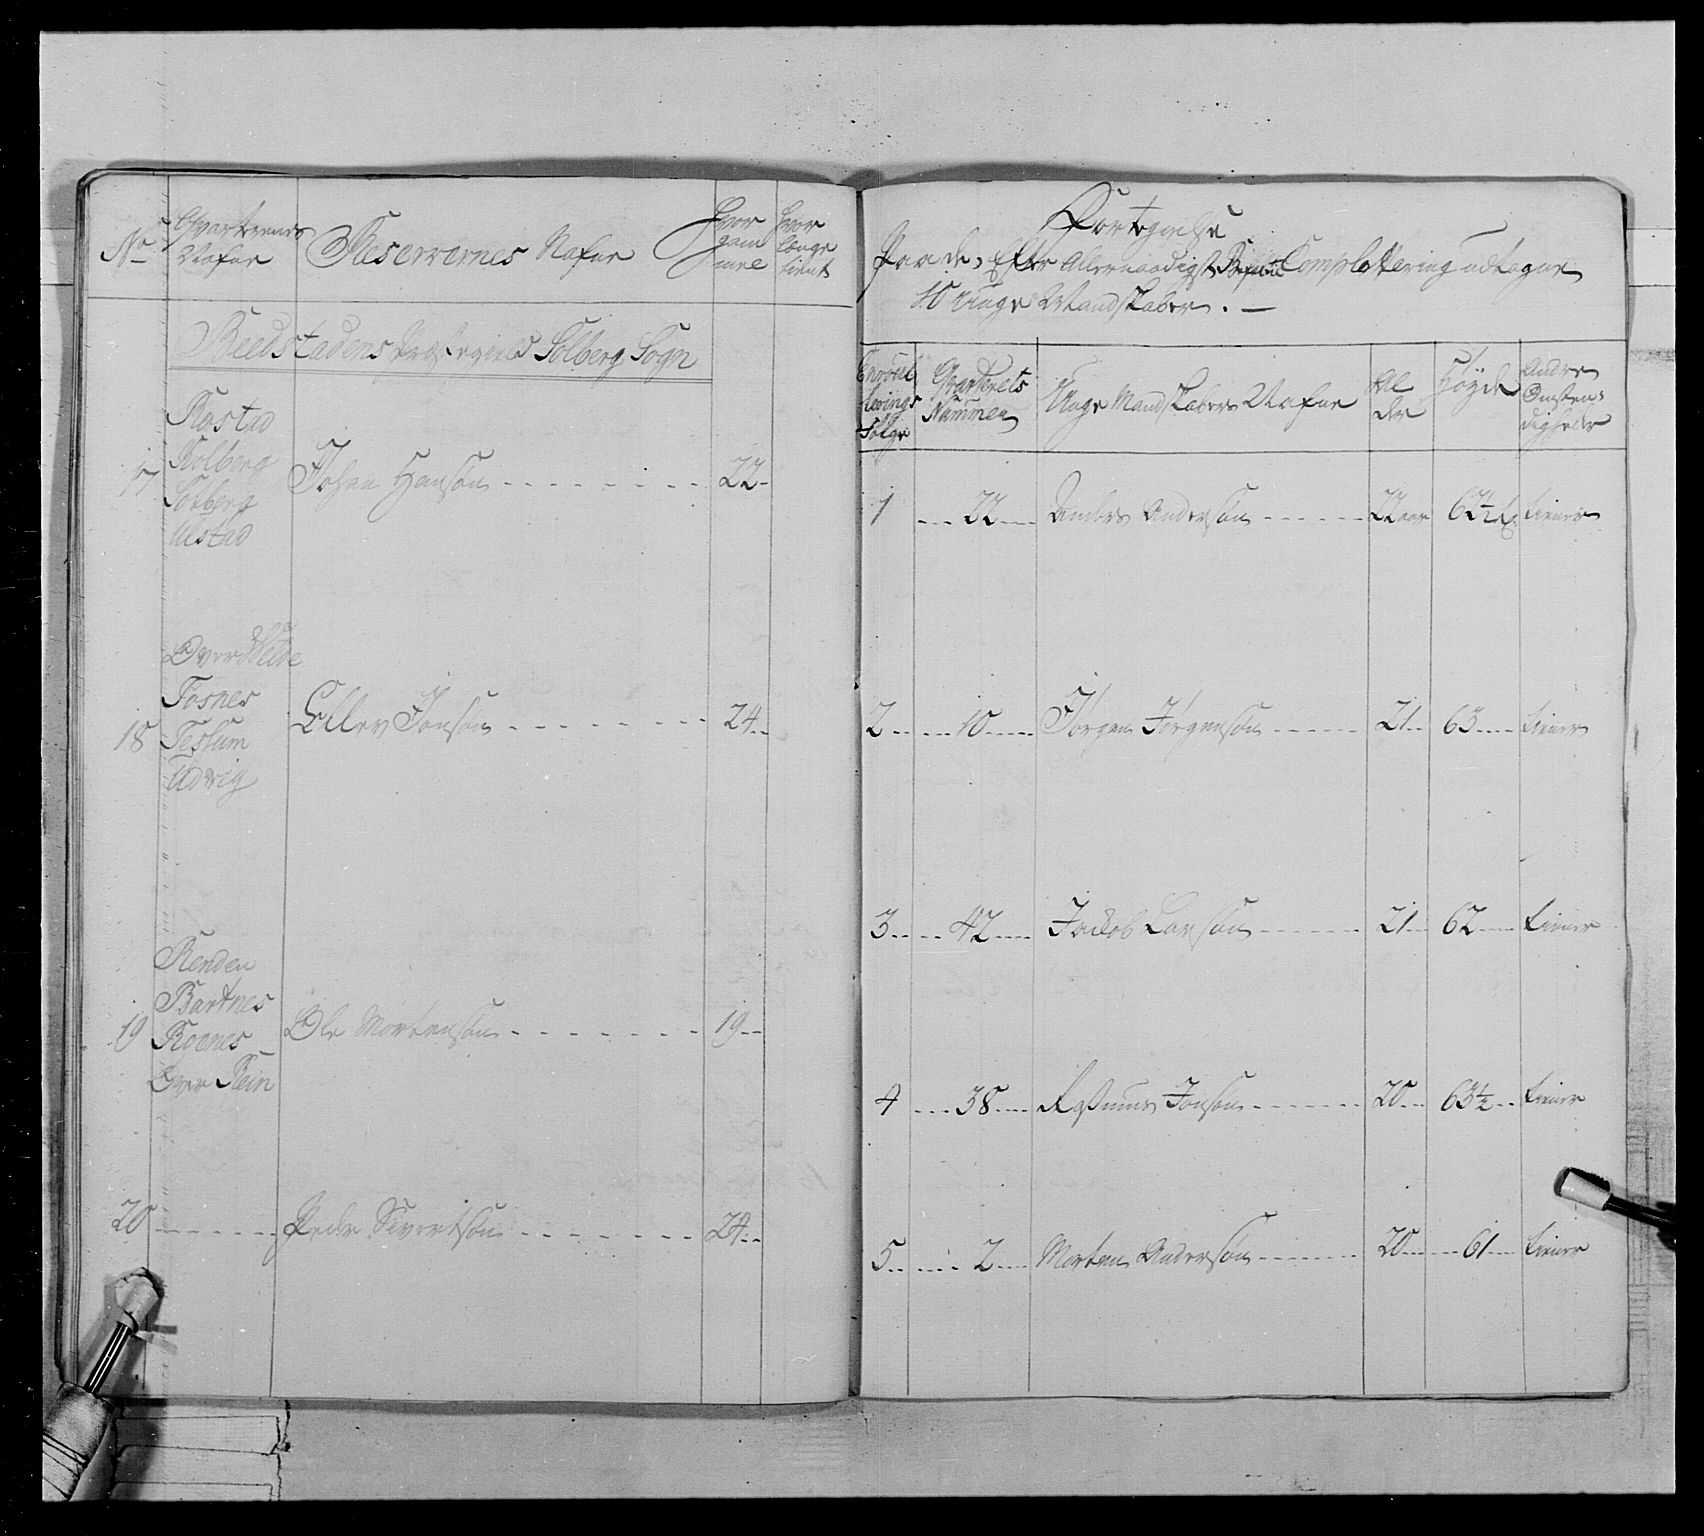 No
Qvarterends Nafne
Reserrernes Nafne
Hvor gam mel
Hvor længe tient
Beedstadens Præstegield Solberg Sogn
17
Rostad
Kolberg
Solberg
Ulstad
Johan Hanson - - - - - - - - 22-
18
Fosnes
Teslum
Udvig
Ellev Jonson - - - - - - - 24--
19
Renden
Bartnes
Roenes
Over Rein
Ole Mortenson - - - - - - - 19--
20 - - - - - - Peder Sivertson - - - - - - - 24--
Fortegnelse
Paa de, Efter Allernaadigst Befalede Complettering udtagne
40 Unge Mandskaber. —
Enroul lerings Følge
Qvarterets Nummer
Unge Mandskabers Nafne
Al der
Høyde
Andre Omsten- digheder
1 --- 22 --- Anders Anderson ------ 22 aar 62½ tiener
2 -- --- 10 ---- Jørgen Jørgenson ------ 21 -- 63 ---- tiener
3 -- -- 42 ---- Jacob Larson ------ 21 -- 62 ---- tiener
4 --- 38 ---- Rasmus Jonson ------- 20 -- 63½ -- tiener
5 -- ---- 2 ---- Morten Anderson ------ 20 --- 61 --- tiener